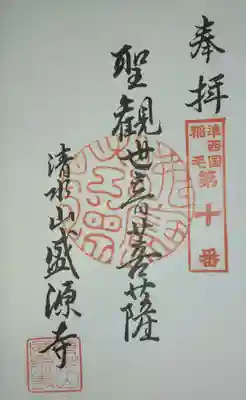 奉拝
准西国
稲毛
第十番
聖観世音菩薩
清水山盛源寺